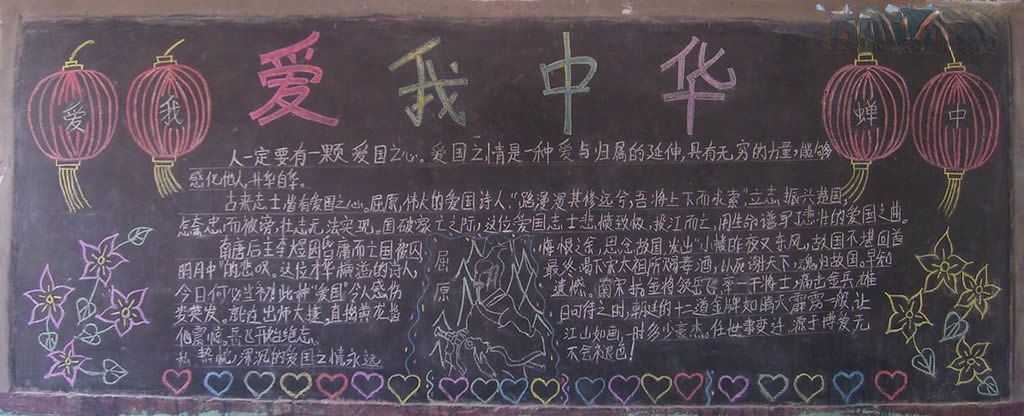 爱我中华
爱
我
蝉
中
人一定要有一颗爱国之心。爱国之情是一种爱与归属的延伸,具有无穷的力量,能够
感化他人,升华自华。
古来志士皆有爱国之心。屈原,伟大的爱国诗人,“路漫漫其修远兮,吾将上下而求索”立志振兴楚国,
忠而被谤,壮志无法实现。国破家亡之际,这位爱国志士悲愤致极,投江而亡,用生命谱写了的爱国之曲。
南唐后主李煜因昏庸而亡国被囚
明月中”的悲叹。这位才华横溢的诗人,
今日何必当初!此种“爱国”令人感伤
屈
原
悔恨之余,思念故国发出“小楼昨夜又东风,故国不堪回首
最终喝下宋太祖所赐毒酒,以死谢天下,魂归故国。早知
遗憾。南宋抗金将领岳飞率一干将士,痛击金兵,雄
日可待之时,朝廷的十二道金牌如晴天霹雳一般,让
江山如画,一时多少豪杰。任世事变迁,源于博爱无
不会褪色!
他震惊。岳飞
深沉的爱国之情永远